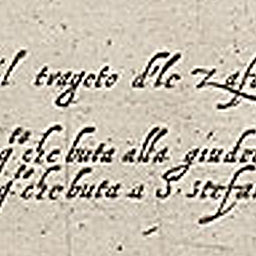 il trageto d'le Zafu
q.to che buta alla giude
q.to che buta a S. stefa